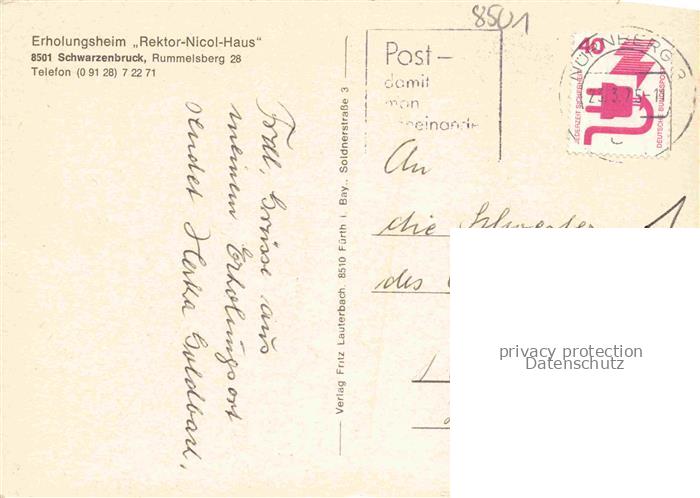 8501
Erholungsheim „Rektor-Nicol-Haus"
8501 Schwarzenbruck, Rummelsberg 28
Telefon (0 91 28) 7 22 71
Post –
damit
man
einande
NÜRNBERG
40
JEDERZEIT SICHERHEIT
DEUTSCHE BUNDESPOST
Verlag Fritz Lauterbach, 8510 Fürth i. Bay., Soldnerstraße 3
Frdl. Grüsse aus
meinem Erholungsort
sendet
An
die Schwester
des
1
privacy protection
Datenschutz